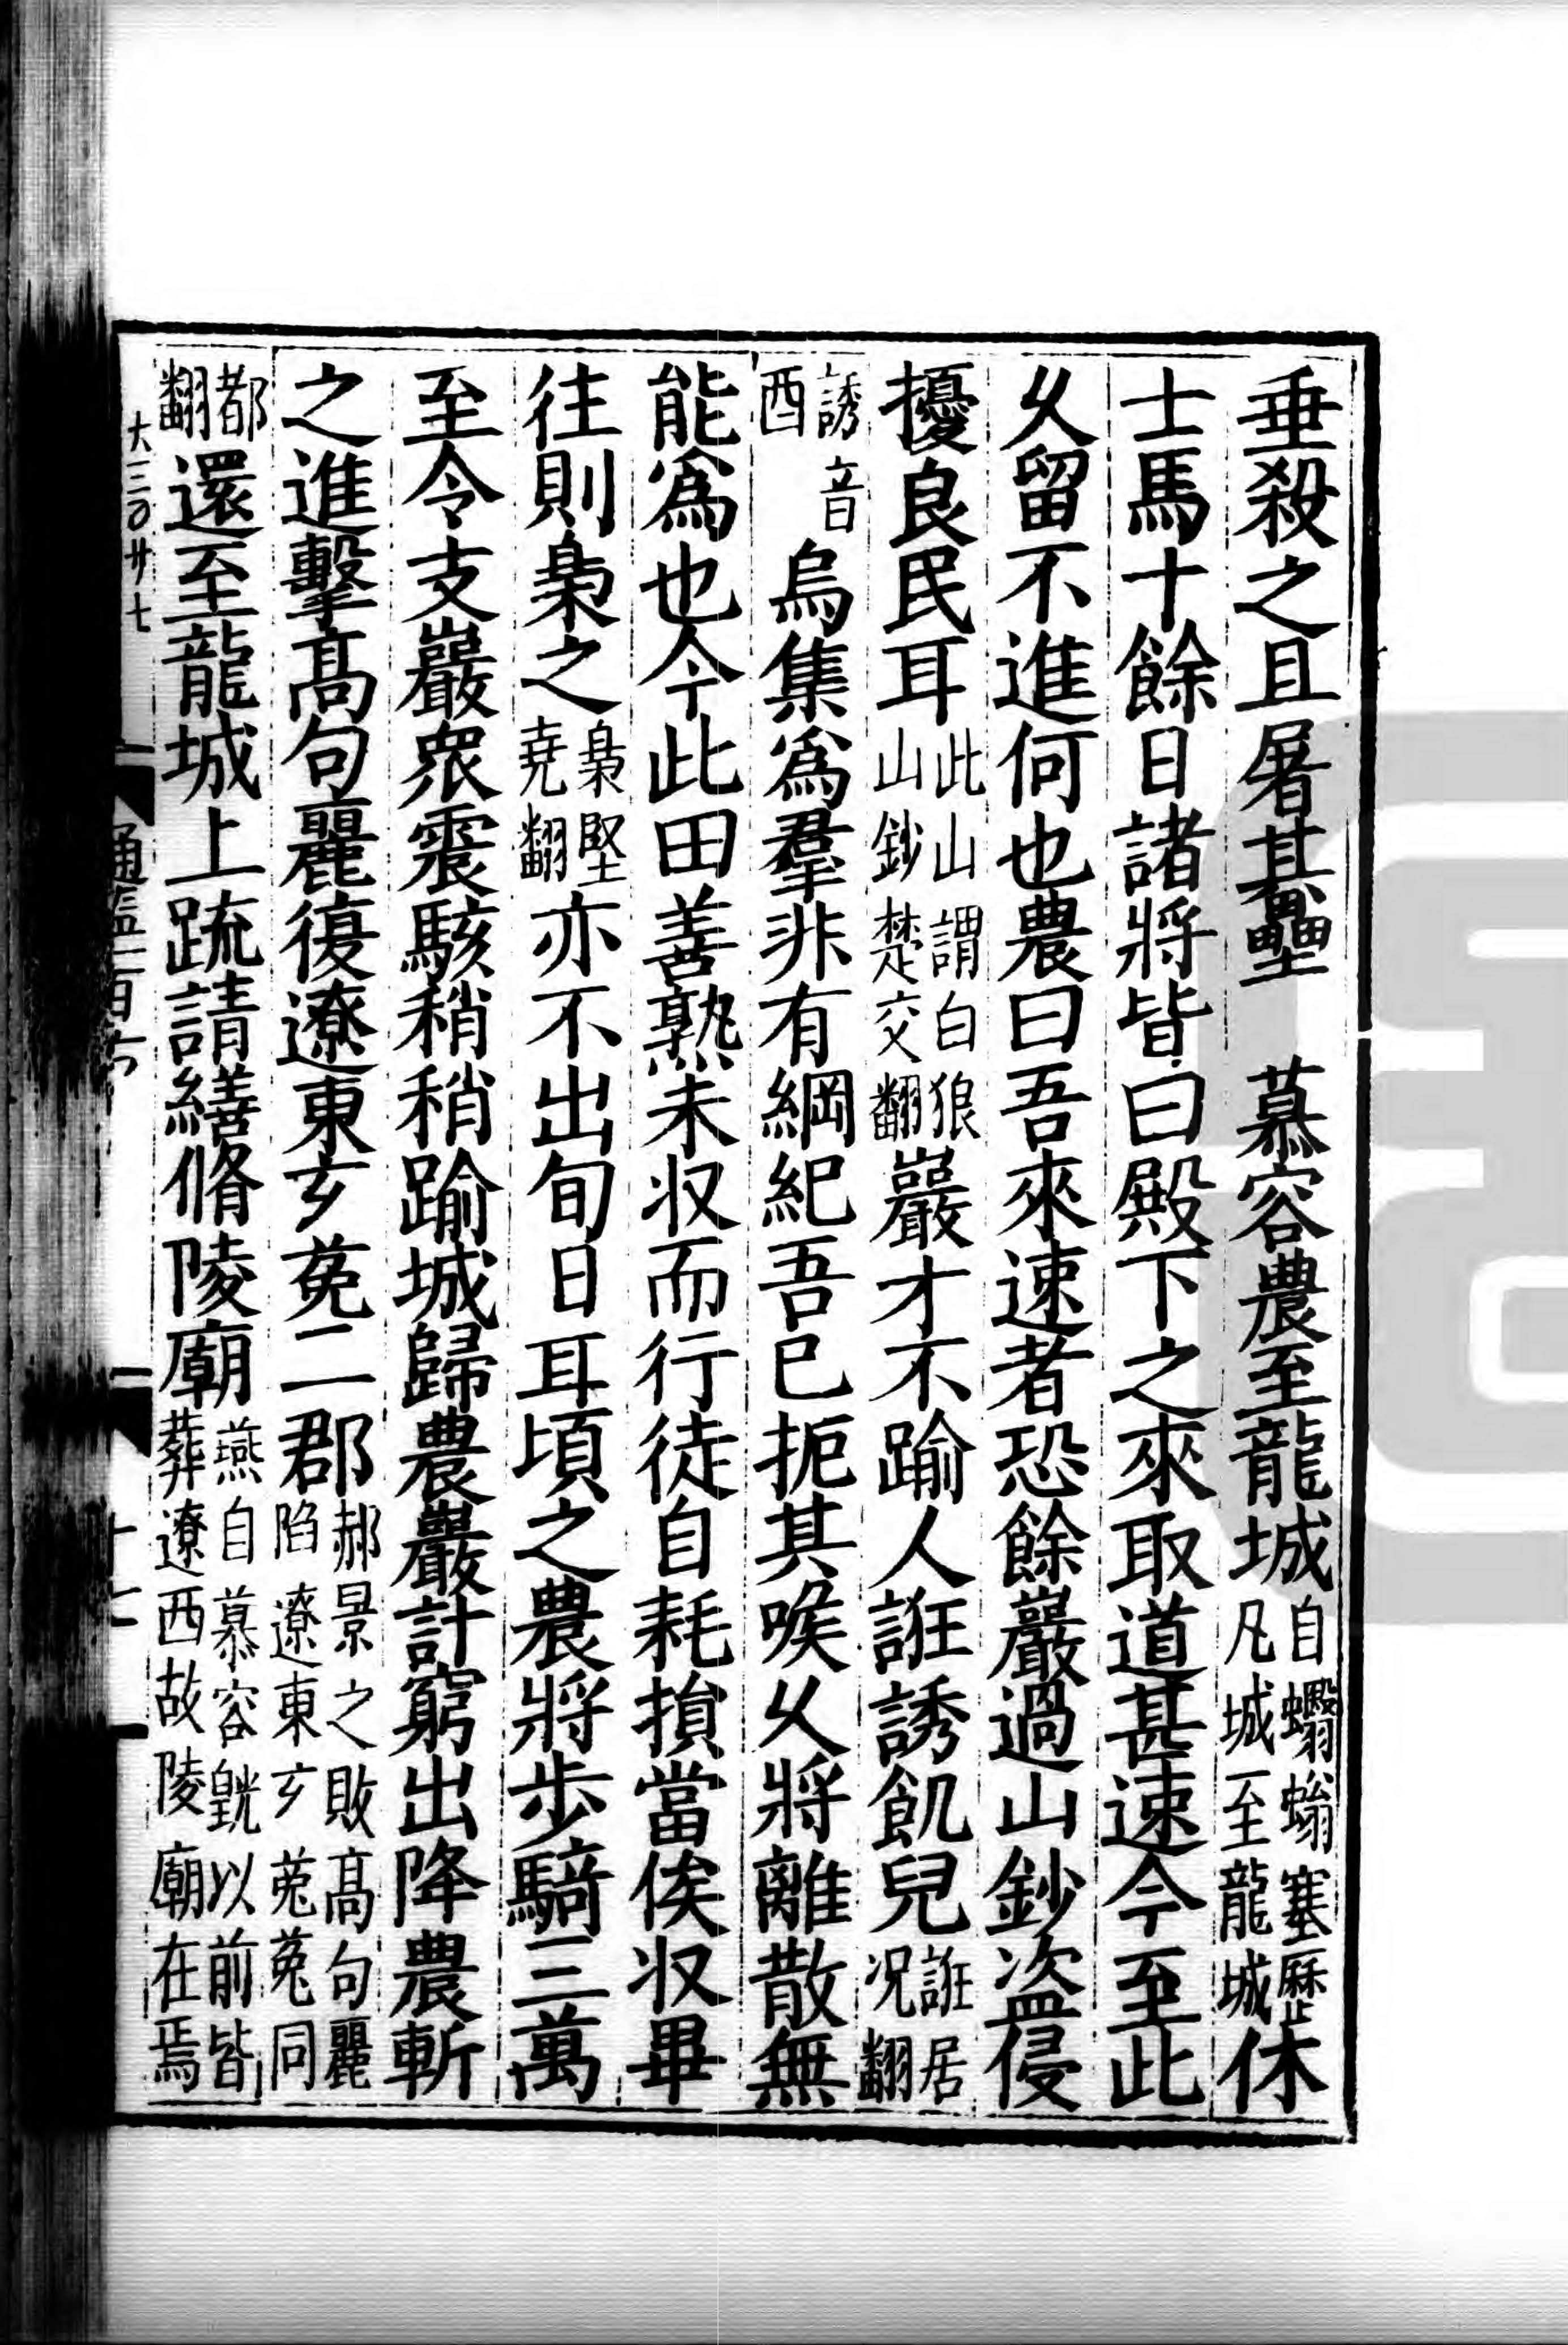 垂殺之且屠其壘　慕容農至龍城自蠮螉塞歷凡城至龍城休
士馬十餘日諸將皆曰殿下之來取道甚速今至此
乆留不進何也農曰吾來速者恐餘巖過山鈔盗侵
擾良民耳此山謂白狼山鈔楚交翻巖才不踰人誑誘飢兒誑居况翻
誘音酉烏集爲羣非有綱紀吾已扼其喉乆將離散無
能爲也今此田善熟未収而行徒自耗損當俟収畢
往則梟之梟堅堯翻亦不出旬日耳頃之農將步騎三萬
至令支巖衆震駭稍稍踰城歸農巖計窮出降農斬
之進擊髙句麗復遼東玄菟二郡郝景之敗髙句麗陷遼東玄菟菟同
都翻還至龍城上疏請繕脩陵廟燕自慕容皝以前皆葬遼西故陵廟在焉
大三〇廿七
通鑑一百六